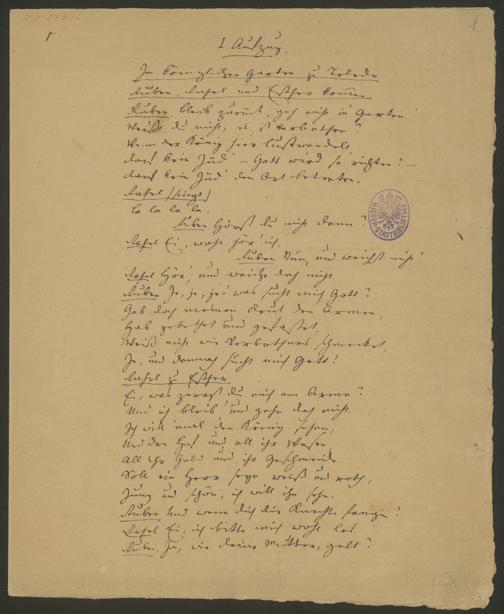 1
I Aufzug.
Im königlichen Garten zu Toledo
Ruben, Rahel und Esther kommen
Ruben bleib zurück, geh nicht in Garten
Weißt du nicht, es ist verbothen?
Wenn der König hier lustwandelt
darf kein Jüd' – Gott wird sie richten! –
darf kein Jüd' den Ort betreten.
Rahel (singt)
la la la la.
Ruben Hörst du nicht denn?
Rahel Ei, wohl hör' ich
Ruben Nun, und weichst nicht?
Rahel Hör', und weiche doch nicht.
Ruben Je, je, je! was sucht mich Gott?
Gab doch meinen Deut den Armen,
Hab gebethet und gefastet,
Weiß nicht wie Verbothnes schmecket
Je, und dennoch sucht mich Gott!
Rahel zu Esther.
Ei, was zerrst du mich am Arme?
Und ich bleib' und gehe doch nicht
Ich will mal den König sehen,
Und den Hof und all ihr Wesen
All ihr Gold und ihr Geschmeide
Soll ein Herr seyn weiß und roth,
Jung und schön, ich will ihn sehn.
Ruben Und wenn dich die Knechte fangen?
Rahel Ei, ich bitte mich wohl los
Ruben Ja, wie deine Mutter, gelt?